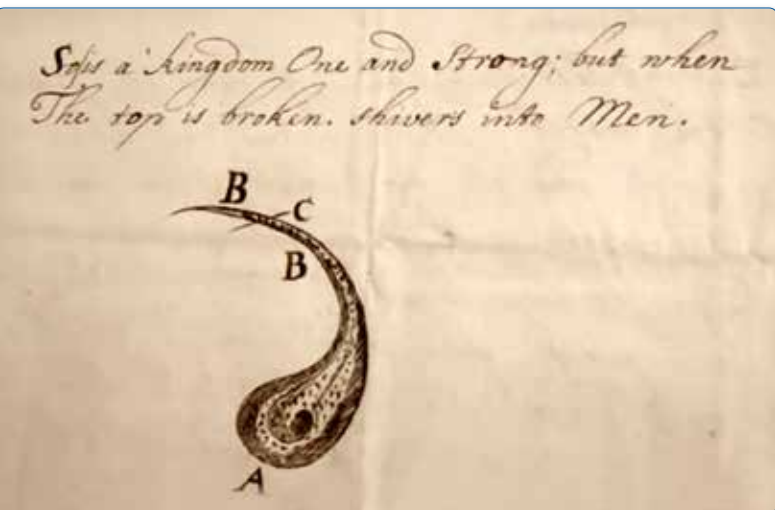 So is a kingdom One and Strong; but when
The top is broken. shivers into Men.
B
C
B
A